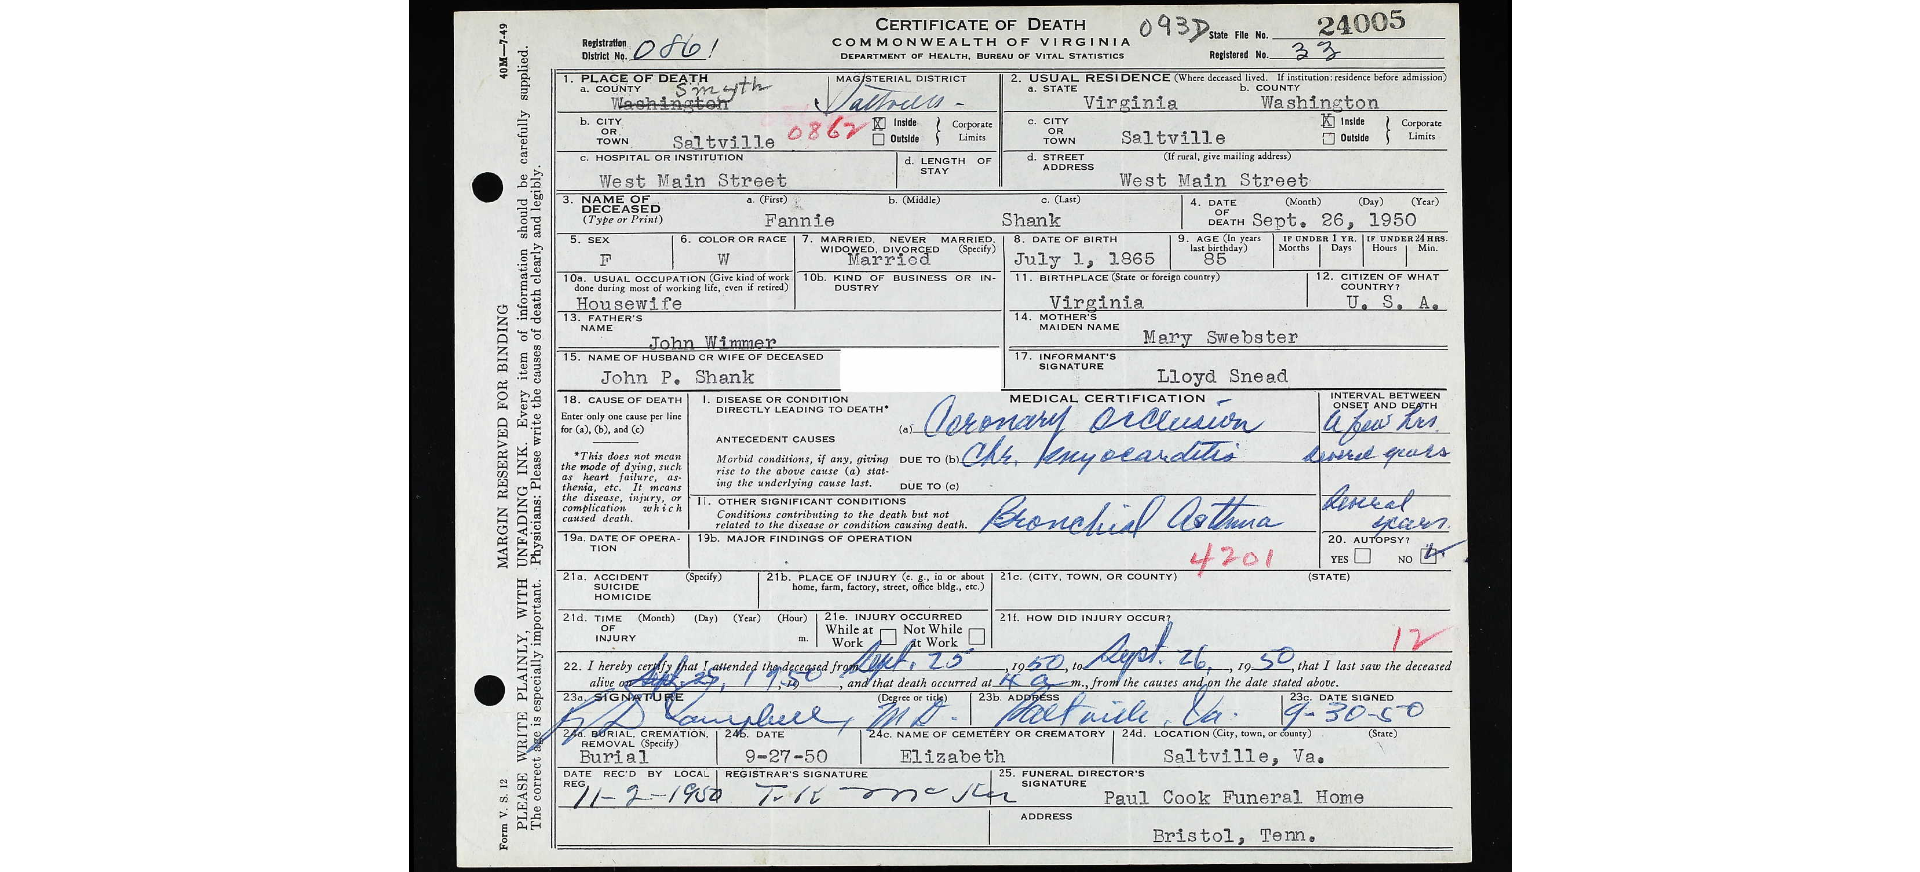 CERTIFICATE OF DEATH
COMMONWEALTH OF VIRGINIA
DEPARTMENT OF HEALTH, BUREAU OF VITAL STATISTICS
Registration District No. 0861
093D State File No. 24005
Registered No. 33
40M—7-49
MARGIN RESERVED FOR BINDING
PLEASE WRITE PLAINLY, WITH UNFADING INK. Every item of information should be carefully supplied.
The correct age is especially important. Physicians: Please write the causes of death clearly and legibly.
Form V. S. 12
1. PLACE OF DEATH
a. COUNTY Smyth
Washington
MAGISTERIAL DISTRICT
Saltville
2. USUAL RESIDENCE (Where deceased lived. If institution: residence before admission)
a. STATE Virginia
b. COUNTY Washington
b. CITY OR TOWN Saltville 0862
X Inside Outside } Corporate Limits
c. CITY OR TOWN Saltville
X Inside Outside } Corporate Limits
c. HOSPITAL OR INSTITUTION
West Main Street
d. LENGTH OF STAY
d. STREET ADDRESS (If rural, give mailing address)
West Main Street
3. NAME OF DECEASED (Type or Print)
a. (First) b. (Middle) c. (Last)
Fannie Shank
4. DATE OF DEATH (Month) (Day) (Year)
Sept. 26, 1950
5. SEX
F
6. COLOR OR RACE
W
7. MARRIED, NEVER MARRIED, WIDOWED, DIVORCED (Specify)
Married
8. DATE OF BIRTH
July 1, 1865
9. AGE (In years last birthday)
85
IF UNDER 1 YR. Months Days
IF UNDER 24 HRS. Hours Min.
10a. USUAL OCCUPATION (Give kind of work done during most of working life, even if retired)
Housewife
10b. KIND OF BUSINESS OR INDUSTRY
11. BIRTHPLACE (State or foreign country)
Virginia
12. CITIZEN OF WHAT COUNTRY?
U. S. A.
13. FATHER'S NAME
John Wimmer
14. MOTHER'S MAIDEN NAME
Mary Swebster
15. NAME OF HUSBAND OR WIFE OF DECEASED
John P. Shank
17. INFORMANT'S SIGNATURE
Lloyd Snead
18. CAUSE OF DEATH
Enter only one cause per line for (a), (b), and (c)
*This does not mean the mode of dying, such as heart failure, asthenia, etc. It means the disease, injury, or complication which caused death.
MEDICAL CERTIFICATION
INTERVAL BETWEEN ONSET AND DEATH
I. DISEASE OR CONDITION DIRECTLY LEADING TO DEATH*
(a) Coronary Occlusion
A few hrs.
ANTECEDENT CAUSES
Morbid conditions, if any, giving rise to the above cause (a) stating the underlying cause last.
DUE TO (b) Chr. Myocarditis
several years
DUE TO (c)
II. OTHER SIGNIFICANT CONDITIONS
Conditions contributing to the death but not related to the disease or condition causing death.
Bronchial Asthma
Several years.
19a. DATE OF OPERATION
19b. MAJOR FINDINGS OF OPERATION
4201
20. AUTOPSY?
YES NO
21a. ACCIDENT SUICIDE HOMICIDE (Specify)
21b. PLACE OF INJURY (e. g., in or about home, farm, factory, street, office bldg., etc.)
21c. (CITY, TOWN, OR COUNTY) (STATE)
21d. TIME OF INJURY (Month) (Day) (Year) (Hour) m.
21e. INJURY OCCURRED
While at Work Not While at Work
21f. HOW DID INJURY OCCUR?
12
22. I hereby certify that I attended the deceased from Sept. 25, 1950, to Sept. 26, 1950, that I last saw the deceased
alive on Sept. 25, 1950, 19, and that death occurred at 4 a m., from the causes and on the date stated above.
23a. SIGNATURE (Degree or title)
Campbell, M.D.
23b. ADDRESS
Saltville, Va.
23c. DATE SIGNED
9-30-50
24a. BURIAL, CREMATION, REMOVAL (Specify)
Burial
24b. DATE
9-27-50
24c. NAME OF CEMETERY OR CREMATORY
Elizabeth
24d. LOCATION (City, town, or county) (State)
Saltville, Va.
DATE REC'D BY LOCAL REG.
11-2-1950
REGISTRAR'S SIGNATURE
T. K. McKee
25. FUNERAL DIRECTOR'S SIGNATURE
Paul Cook Funeral Home
ADDRESS
Bristol, Tenn.